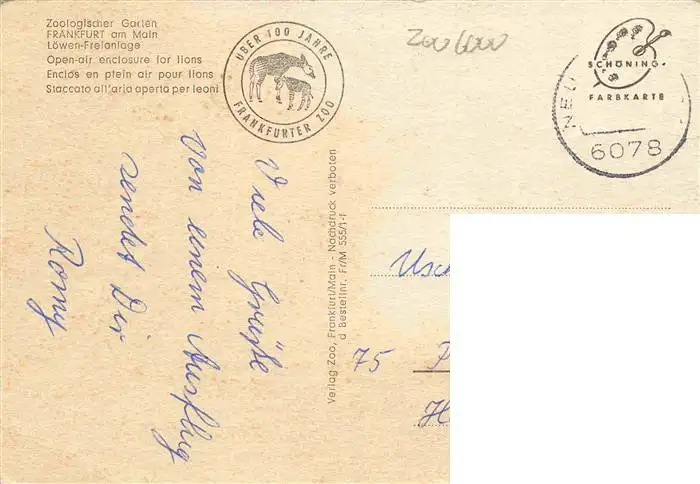 Zoologischer Garten
FRANKFURT am Main
Löwen-Freianlage
Open-air enclosure for lions
Enclos en plein air pour lions
Staccato all'aria aperta per leoni
ÜBER 100 JAHRE
FRANKFURTER ZOO
Zoo
SCHÖNING-
FARBKARTE
NEU
6078
Viele Grüße
von einem Ausflug
sendet Dir
Romy
Verlag Zoo, Frankfurt/Main - Nachdruck verboten
d Bestellnr. Fr/M 555/1-f
Usch
75 P
H